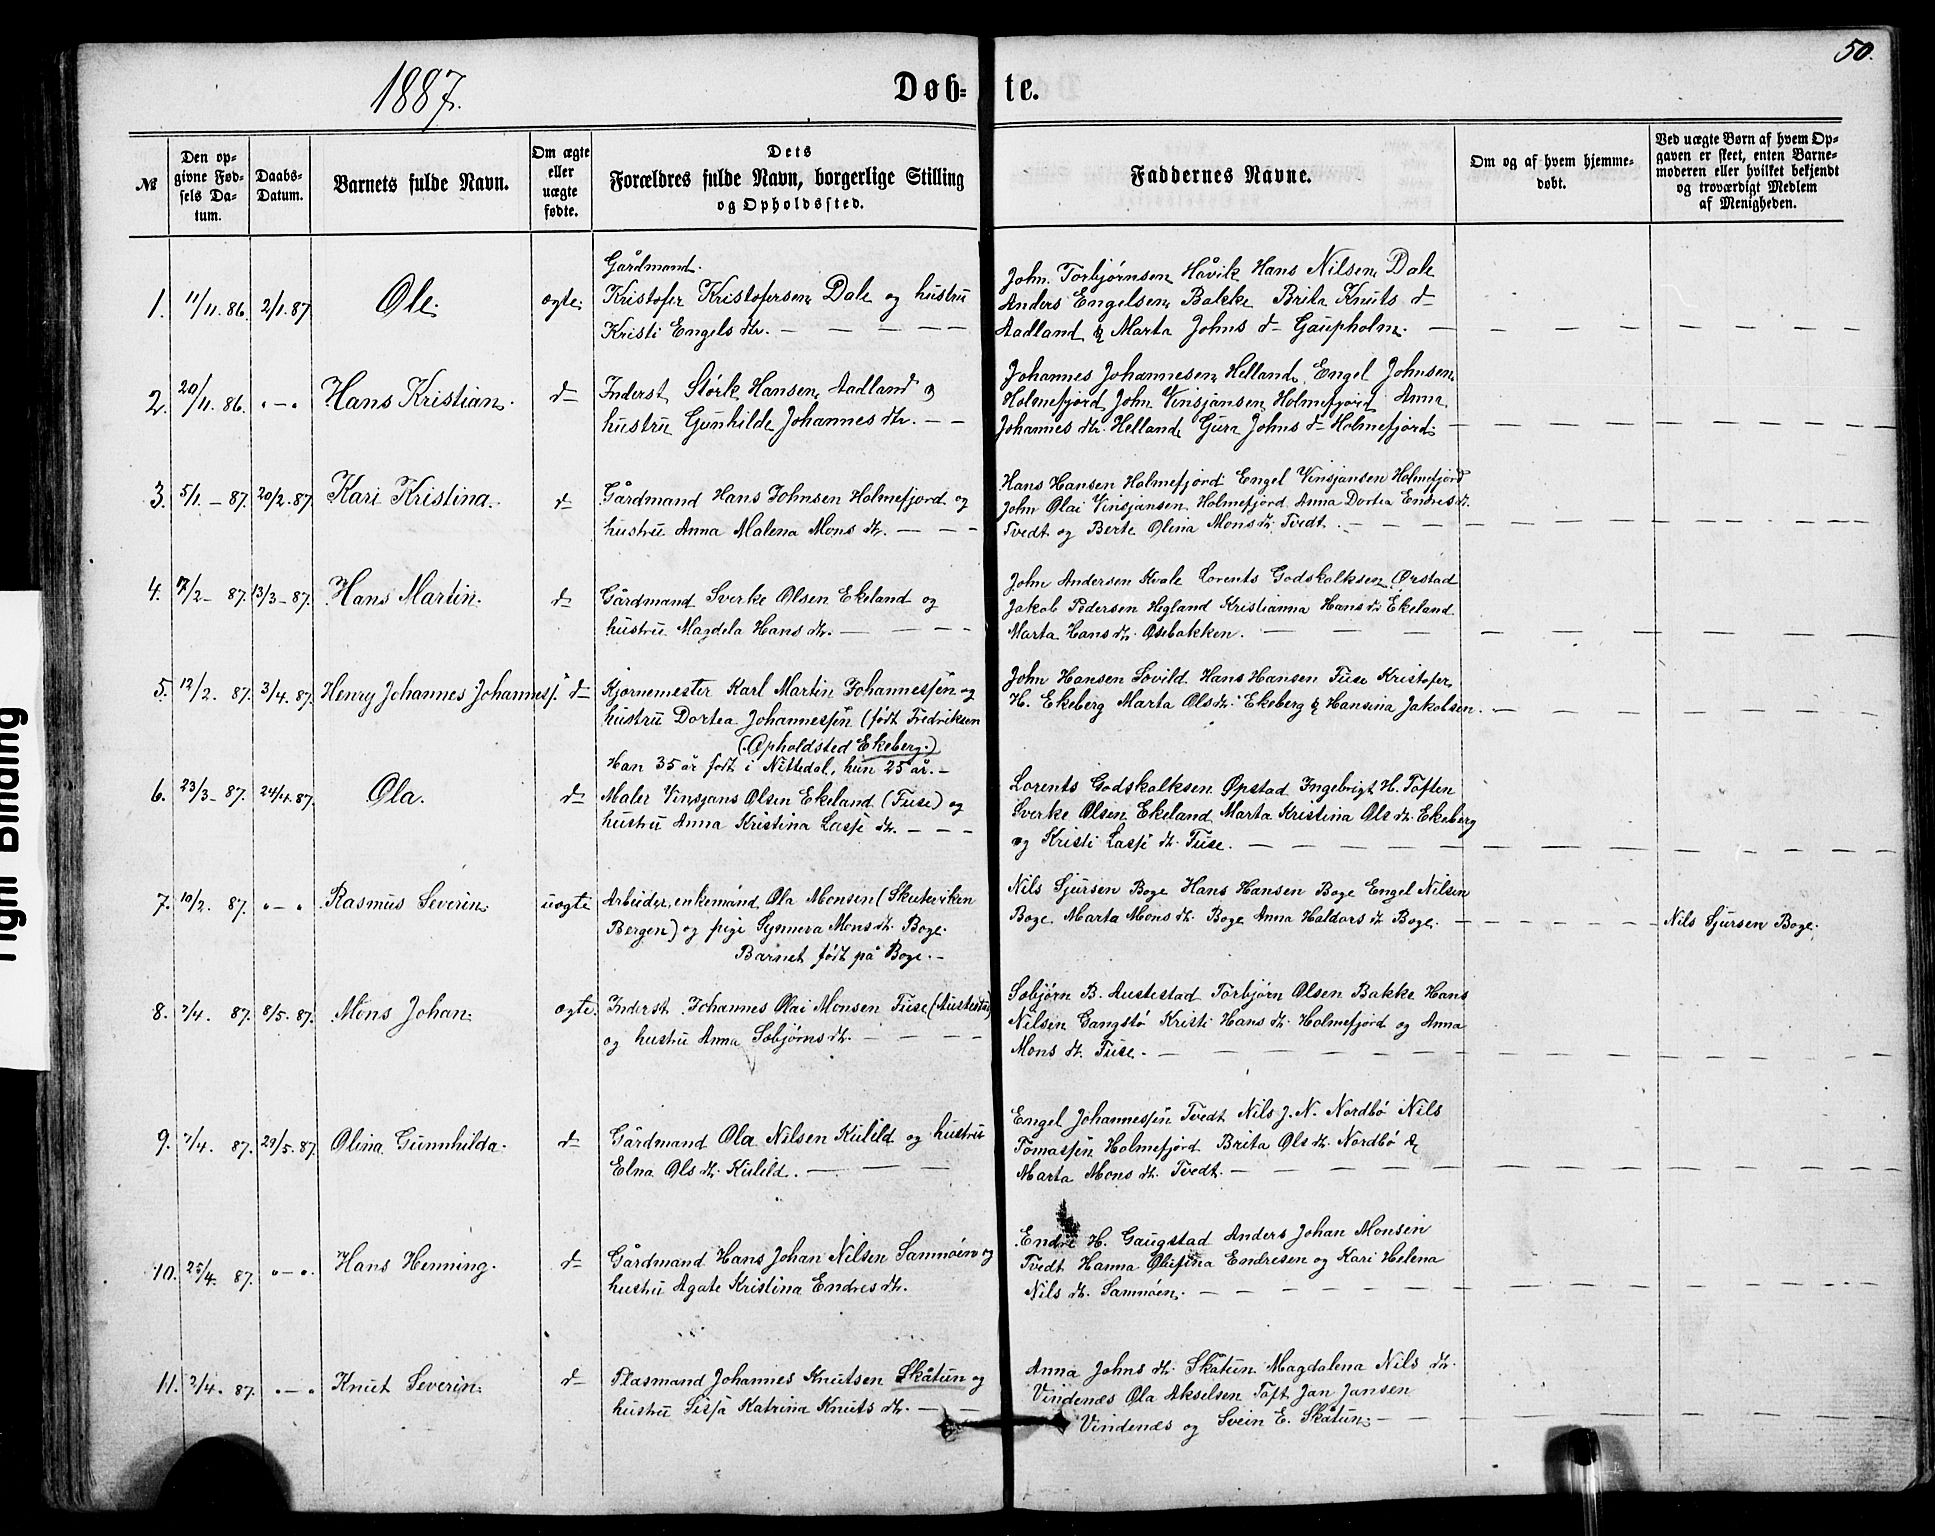 50.
1887.
Døb-te.
№
Den op-
givne Fød-
sels Da-
tum.
Daabs-
Datum.
Barnets fulde Navn.
Om ægte
eller
uægte
fødte.
Dets
Forældres fulde Navn, borgerlige Stilling
og Opholdssted.
Faddernes Navne.
Om og af hvem hjemme-
døbt.
Ved uægte Børn af hvem Op-
gaven er skeet, enten Barne-
moderen eller hvilket bekjendt
og troværdigt Medlem
af Menigheden.
1. 11/11. 86. 2/1. 87. Ole. ægte.
Gårdmand.
Kristofer Kristofersen Dale og hustru
Kristi Engels dtr.
John Torbjørnsen Håvik Hans Nilsen Dale
Anders Engelsen Bakke Brita Knuts d
Aadland & Marta Johns d Gaupholm.
2. 20/11. 86. " - " Hans Kristian. d
Inderst Størk Hansen Aadland og
hustru Gunhilde Johannes dtr.
Johannes Johannesen Helland, Engel Johnsen
Holmefjord John Vinsjansen Holmefjord Anna
Johannes dtr. Helland Gura Johns d Holmefjord.
3. 5/1 - 87. 20/2. 87. Kari Kristina. d
Gårdmand Hans Johnsen Holmefjord og
hustru Anna Malena Mons dtr.
Hans Hansen Holmefjord Engel Vinsjansen Holmefjord
John Olai Vinsjansen Holmefjord Anna Dortea Endres dtr.
Tvedt og Berte Olina Mons dtr. Tvedt.
4. 7/2 - 87. 13/3 - 87. Hans Martin. d
Gårdmand Sverke Olsen Ekeland og
hustru Magdela Hans dtr.
John Andersen Kvale Lorents Godskalksen Ørstad
Jakob Pedersen Hegland Kristianna Hans dtr Ekeland
Marta Hans dtr. Osebakken.
5. 12/2. 87. 3/4. 87. Henry Johannes Johannesj. d
Kjørnemester Karl Martin Johannesjen og
hustru Dortea Johannesjen (født Fredriksen
(Opholdsted Ekeberg.)
Han 35 år født i Nittedal, hun 25 år.
John Hansen Sovild Hans Hansen Fuse Kristofer
H. Ekeberg Marta Ols dtr. Ekeberg & Hansina Jakobsen.
6. 23/3 - 87. 24/4. 87. Ola. d
Maler Vinsjans Olsen Ekeland (Fuse) og
hustru Anna Kristina Lasse dtr.
Lorents Godskalksen Opstad Ingebrigt H. Toften
Sverke Olsen Ekeland Marta Kristina Ols dtr. Ekeberg
og Kristi Lasse dtr. Fuse.
7. 10/2. 87. " - " Rasmus Severin. uægte
Arbeider, enkemand Ola Monsen (Skuteviken
Bergen) og pige Synneva Mons dtr. Boge.
Barnet født på Boge.
Nils Sjursen Boge Hans Hansen Boge Engel Nilsen
Boge Marta Mons dtr. Boge Anna Haldors dtr Boge.
Nils Sjursen Boge.
8. 7/4. 87. 8/5. 87. Mons Johan. ægte.
Inderst Johannes Olai Monsen Fuse (Austestad)
og hustru Anna Sobjørns dtr.
Sobjørn B. Austestad Torbjørn Olsen Bakke Hans
Nilsen Gangstø Kristi Hans dtr. Holmefjord og Anna
Mons dtr. Fuse.
9. 7/4. 87. 29/5. 87. Olina Gunnhilda. d
Gårdmand Ola Nilsen Kileld og hustru
Elna Ols dtr. Kileld.
Engel Johannesjen Tvedt Nils J. N. Nordbø Nils
Tomasjen Holmefjord Brita Ols dtr. Nordbø &
Marta Mons dtr. Tvedt.
10. 25/4. 87. " - " Hans Henning. d
Gårdmand Hans Johan Nilsen Samnøen og
hustru Agate Kristina Endres dtr.
Endre H. Gaugstad Anders Johan Monsen
Tvedt Hanna Olufina Endresen og Kari Helena
Nils dtr. Samnøen.
11. 2/4. 87. " - " Knut Severin. d
Plasmand Johannes Knutsen Skåtun og
hustru Sisja Katrina Knuts dtr.
Anna Johns dtr. Skåtun Magdalena Nils dtr.
Vindenæs Ola Akselsen Toft Jan Jansen
Vindenæs og Svein E. Skåtun.
Tight Binding